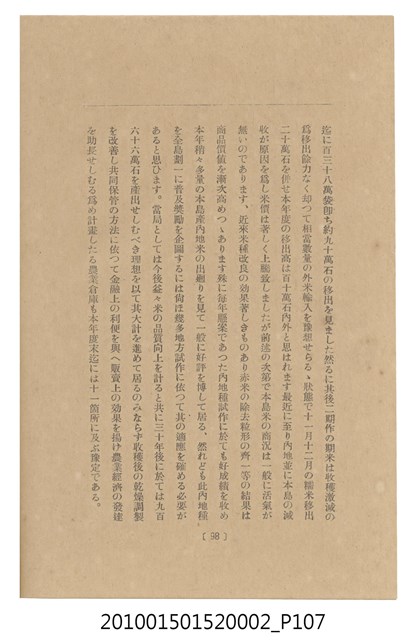 迄に百三十八萬袋卽ち約九十萬石の移出を見ました然るに其後二期作の期米は收穫激減の
爲移出餘力なく却つて相當數量の外米輸入を豫想せらるゝ狀態で十一月十二月の糯米移出
二十萬石を併せ本年度の移出高は百十萬石內外と思はれます最近に至り內地並に本島の減
收が原因を爲し米價は著しく上騰致しましたが前述の次第で本島米の商況は一般に活氣が
無いのであります、近來米種改良の效果著しきものあり赤米の除去粒形の齊一等の結果は
商品價値を漸次高めつゝあります殊に每年懸案であつた內地種試作に於ても好成績を收め
本年稍々多量の本島產內地米の出廻りを見て一般に好評を博して居る、然れども此內地種
を全島劃一に普及奬勵を企圖するには尙ほ幾多地方試作に依つて其の適應を確める必要が
あると思ひます。當局としては今後益々米の品質向上を計ると共に三十年後に於ては九百
六十六萬石を產出せしむべき理想を以て其大計を進めて居るのみならず收穫後の乾燥調製
を改善し共同保管の方法に依つて金融上の利便を與へ販賣上の效果を揚げ農業經濟の發達
を助長せしむる爲め計畫したる農業倉庫も本年度末迄には十一箇所に及ぶ豫定である。
( 98 )
201001501520002_P107